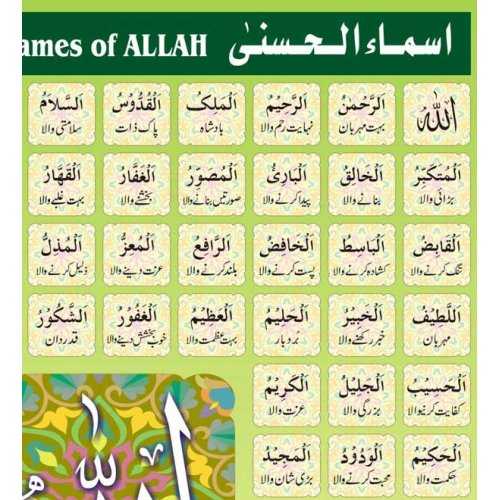 اسماء الحسنیٰ ames of ALLAH
اَللّٰهُ
اَلرَّحْمٰنُ
بہت مہربان
اَلرَّحِيْمُ
نہایت رحم والا
اَلْمَلِكُ
بادشاہ
اَلْقُدُّوْسُ
پاک ذات
اَلسَّلَامُ
سلامتی والا
اَلْمُتَكَبِّرُ
بڑائی والا
اَلْخَالِقُ
بنانے والا
اَلْبَارِئُ
پیدا کرنے والا
اَلْمُصَوِّرُ
صورتیں بنانے والا
اَلْغَفَّارُ
بخشنے والا
اَلْقَهَّارُ
بہت غلبے والا
اَلْقَابِضُ
تنگ کرنے والا
اَلْبَاسِطُ
کشادہ کرنے والا
اَلْخَافِضُ
پست کرنے والا
اَلرَّافِعُ
بلند کرنے والا
اَلْمُعِزُّ
عزت دینے والا
اَلْمُذِلُّ
ذلیل کرنے والا
اَللَّطِيْفُ
مہربان
اَلْخَبِيْرُ
خبر رکھنے والا
اَلْحَلِيْمُ
بُردبار
اَلْعَظِيْمُ
بہت عظمت والا
اَلْغَفُوْرُ
خوب بخشش دینے والا
اَلشَّكُوْرُ
قدردان
اَلْحَسِيْبُ
کفایت کرنیوالا
اَلْجَلِيْلُ
بزرگی والا
اَلْكَرِيْمُ
عزت والا
اَلْحَكِيْمُ
حکمت والا
اَلْوَدُوْدُ
محبت کرنے والا
اَلْمَجِيْدُ
بڑی شان والا